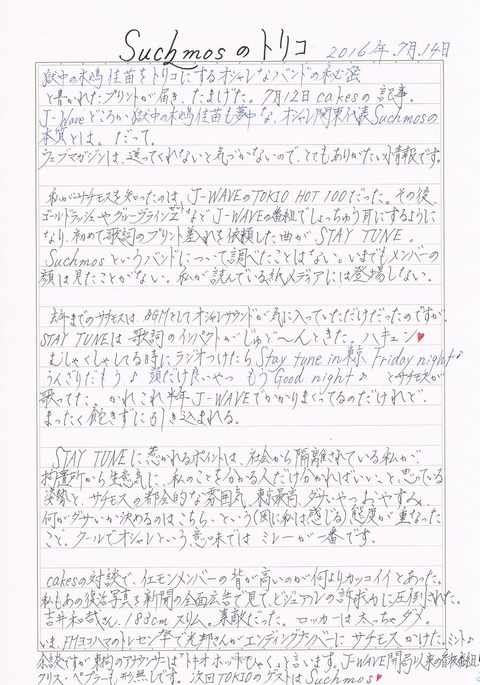 Suchmosのトリコ 2016年.7月.14日
獄中の木嶋佳苗をトリコにするオシャレなバンドの秘密
と書かれたプリントが届き、たまげた。7月12日cakesの記事。
J-Waveどころか獄中の木嶋佳苗も夢中な、オシャレ関東代表Suchmosの
本質とは。だって。
ウェブマガジンは、送ってくれないと気づかないので、とてもありがたい情報です。
私がサチモスを知ったのは、J-WAVEのTOKIO HOT 100だった。その後、
ゴールドラッシュやグルーヴラインZなどJ-WAVEの番組でしょっちゅう耳にするように
なり、初めて歌詞のプリント差入れを依頼した曲がSTAY TUNE。
Suchmosというバンドについて調べたことはない。いまでもメンバーの
顔は見たことがない。私が読んでいる紙メディアには登場しない。
去年までのサチモスは、BGMとしてオシャレサウンドが気に入っていただけだったのですが、
STAY TUNEは歌詞のインパクトがじゅど〜んときた。ハキュン♥
むしゃくしゃしてる時にラジオつけたらStay tune in 東京 Friday night♪
うんざりだもう♪ 頭だけ良いやつ もうGood night♪ とサチモスが
歌ってた。かれこれ半年J-WAVEでかかりまくってるのだけれど、
まったく飽きずに引き込まれる。
STAY TUNEに惹かれるポイントは、社会から隔離されている私が
拘置所から生意気に、私のことを分かる人だけ分かればいい、と思っている
姿勢と、サチモスの都会的な雰囲気、東京最高、ダサいやつおやすみ、
何がダサいか決めるのはこちら、という(風に私は感じる)態度が重なった
こと。クールでオシャレという意味ではミレーが一番です。
cakesの対談で、イエモンメンバーの背が高いのが何よりカッコイイとあった。
私もあの復活写真を新聞の全面広告で見て、ビジュアルの訴求力に圧倒された。
吉井和哉さん、183cmスリム。素敵だった。ロッカーは太っちゃダメ。
いま、FMヨコハマのトレセン午で光邦さんがエンディングナンバーにサチモスかけた。ミント♪
余談ですが東拘のアナウンサーは"トキオホッ\ひゃく"と言います。J-WAVE開局以来の看板番組!
クリス・ペプラーも形無しです。次回TOKIOのゲストはSuchmos♥